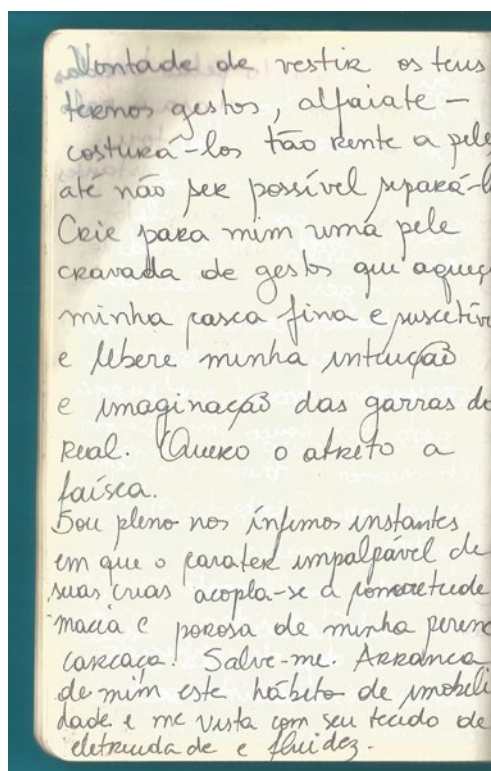 Vontade de vestir os teus
ternos gestos, alfaiate –
costurá-los tão rente a pele
até não ser possível repará-l
Crie para mim uma pele
cravada de gestos que aqueç
minha casca fina e suscetív
e libere minha intuição
e imaginação das garras do
real. Quero o atrito a
faísca.
Sou pleno nos ínfimos instantes
em que o carater impalpável de
suas crias acopla-se a concretude
macia e porosa de minha peren
carcaça. Salve-me. Arranca
de mim este hábito de imobili
dade e me vista com seu tecido de
eletricidade e fluidez.